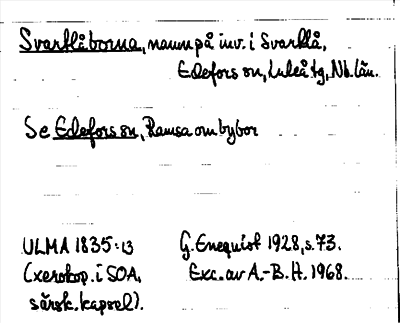 Svartlåborna, namn på inv. i Svartlå,
Edefors sn, Luleå tg, Nb. län.
Se Edefors sn, Ramsa om bybor
ULMA 1835:13 G. Enequist 1928, s. 73.
(xerokop. i SOA, Exc. av A.-B. H. 1968.
särsk. kapsel).